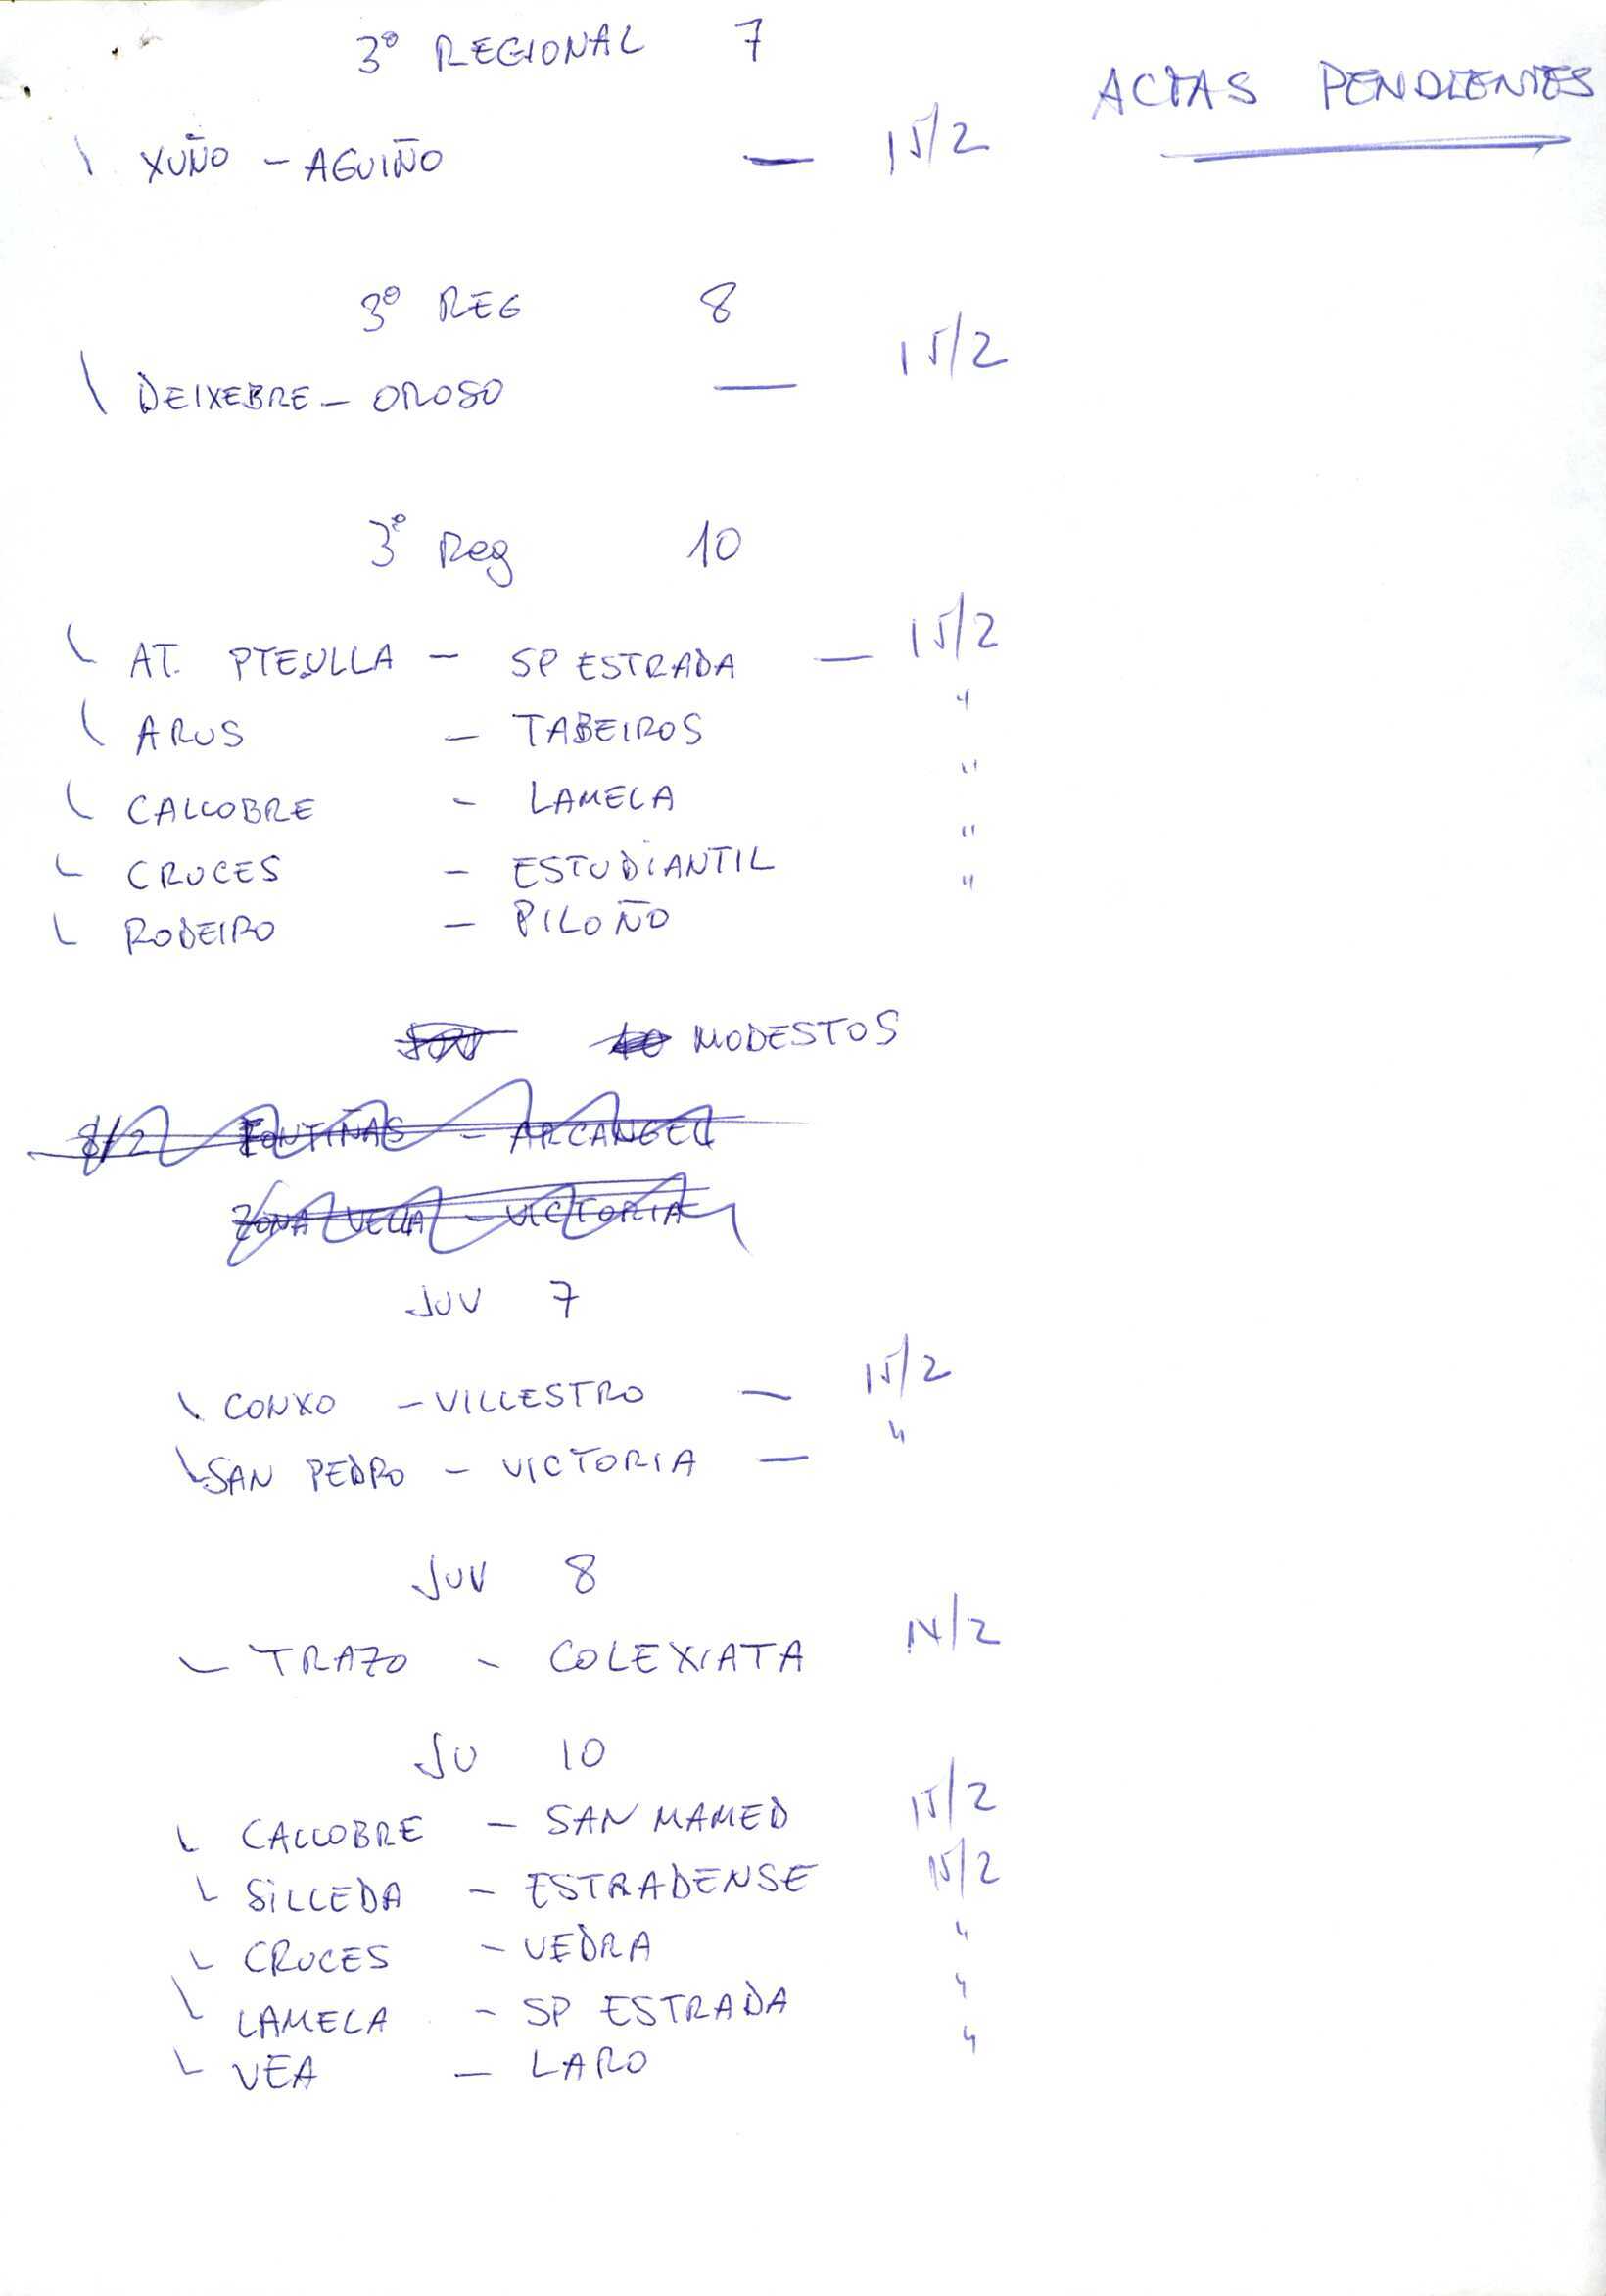 3º REGIONAL 7
ACTAS PENDIENTES
XUÑO - AGUIÑO — 15/2
3º REG 8
DEIXEBRE - OROSO — 15/2
3º Reg 10
AT. PTEULLA - SP ESTRADA — 15/2
ARUS - TABEIROS "
CALLOBRE - LAMELA "
CRUCES - ESTUDIANTIL "
RODEIRO - PILOÑO "
MODESTOS
8/2 FONTIÑAS - ARCANGEL
ZONA VELLA - VICTORIA
JUV 7
CONXO - VILLESTRO — 15/2
SAN PEDRO - VICTORIA — "
JUV 8
TRAZO - COLEXIATA 14/2
JU 10
CALLOBRE - SAN MAMED 15/2
SILLEDA - ESTRADENSE 15/2
CRUCES - VEDRA "
LAMELA - SP ESTRADA "
VEA - LARO "